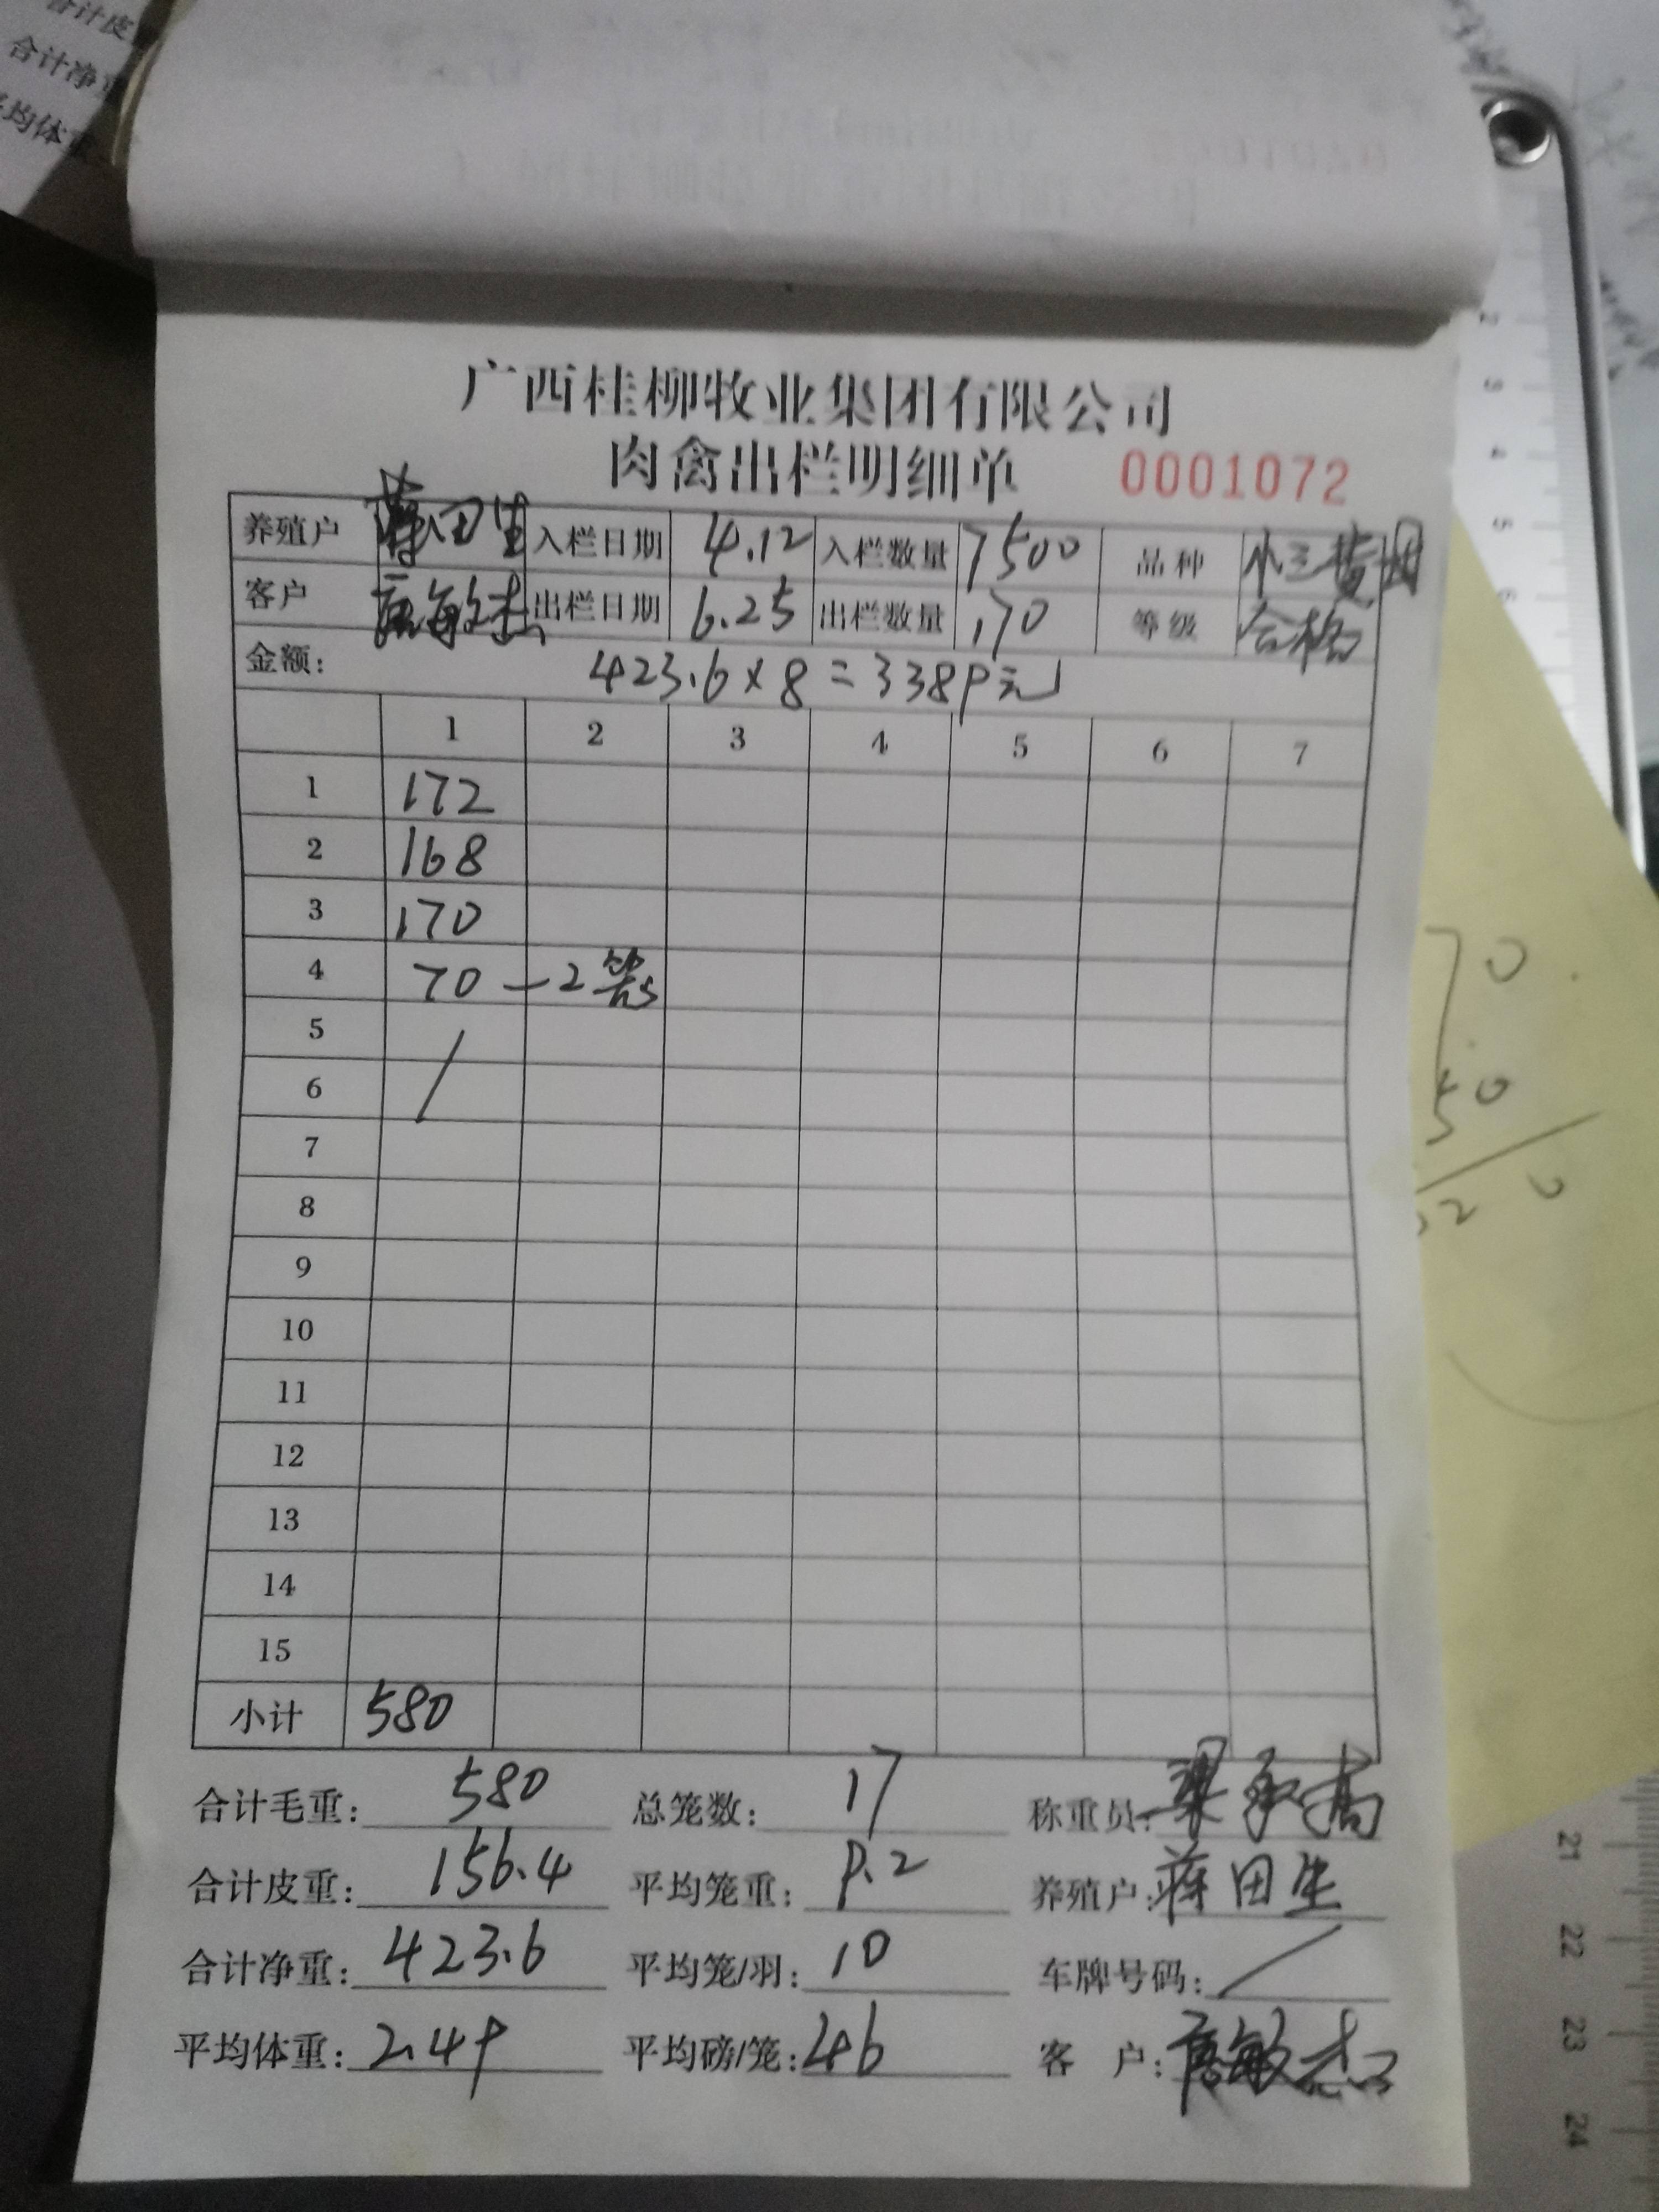 合计皮
合计净重
平均体重
广西桂柳牧业集团有限公司
肉禽出栏明细单 0001072
养殖户 蒋田生 入栏日期 4.12 入栏数量 7500 品种 小三黄
客户 唐敏杰 出栏日期 6.25 出栏数量 170 等级 合格
金额: 423.6×8=3389元
1 2 3 4 5 6 7
1 172
2 168
3 170
4 70 —2笼
5 /
6
7
8
9
10
11
12
13
14
15
小计 580
合计毛重: 580 总笼数: 17 称重员: 梁
合计皮重: 156.4 平均笼重: 9.2 养殖户: 蒋田生
合计净重: 423.6 平均笼/羽: 10 车牌号码: /
平均体重: 2.49 平均磅/笼: 4.6 客 户: 唐敏杰
70
50
20
2
3
4
5
6
21
22
23
24